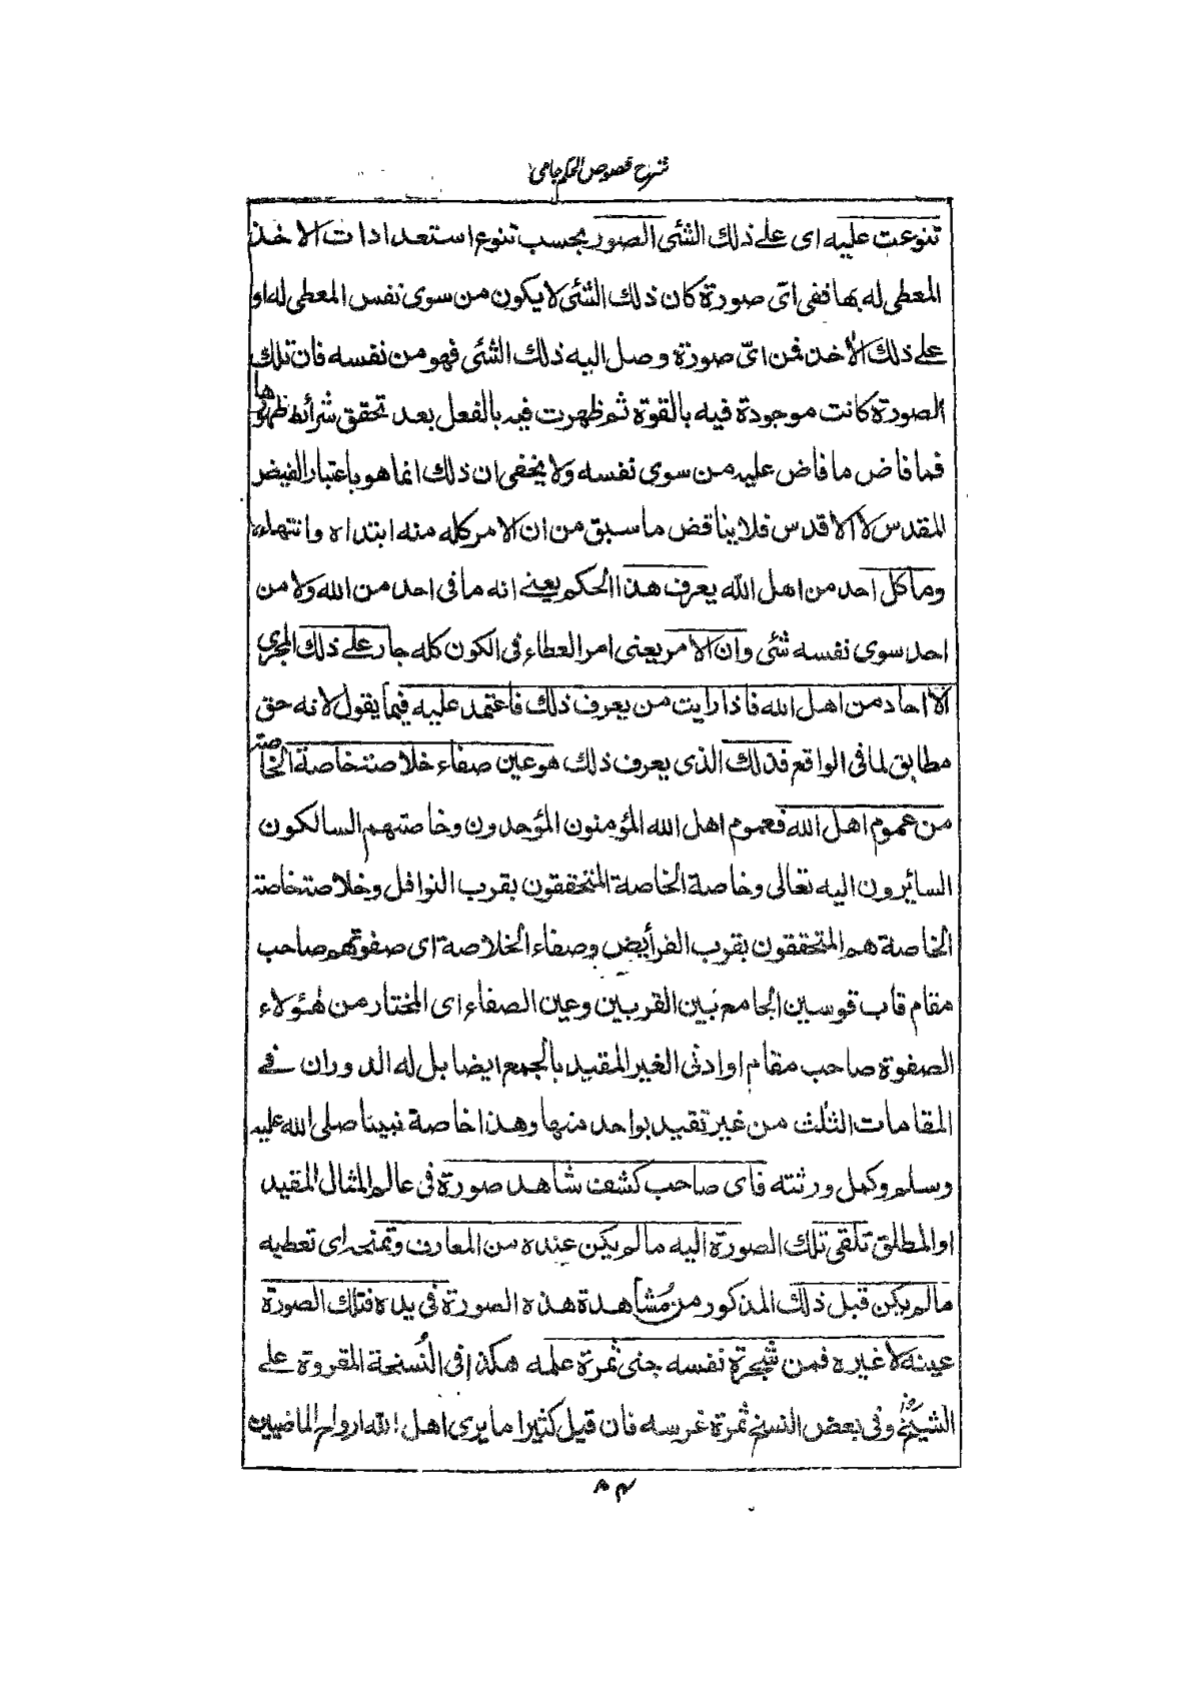 شرح فصوص الحكم جامى
تنوعت عليه اى على ذلك الشئ الصور بحسب تنوع استعدادات الاخذ
المعطى له بها ففى اىّ صورة كان ذلك الشئ لا يكون من سوى نفس المعطى له او
على ذلك الأخذ فمن اىّ صورة وصل اليه ذلك الشئ فهو من نفسه فان تلك
الصورة كانت موجودة فيه بالقوة ثم ظهرت فيه بالفعل بعد تحقق شرائط ظهورها
فما فاض ما فاض عليه من سوى نفسه ولا يخفى ان ذلك انما هو باعتبار الفيض
المقدس لا الاقدس فلا يناقض ما سبق من ان الامر كله منه ابتداه وانتهاءه
وما كل احد من اهل الله يعرف هذا الحكم يعنے انه ما فى احد من الله ولا من
احد سوى نفسه شئ وان الامر يعنى امر العطاء فى الكون كله جار على ذلك المجرى
الا احاد من اهل الله فاذا رايت من يعرف ذلك فاعتمد عليه فيما يقول لانه حق
مطابق لما فى الواقع فذلك الذى يعرف ذلك هو عين صفاء خلاصة خاصة الخاصة
من عموم اهل الله فعموم اهل الله المؤمنون المؤحدون وخاصتهم السالكون
السائرون اليه تعالى وخاصة الخاصة المتحققون بقرب النوافل وخلاصة خاصة
الخاصة هم المتحققون بقرب الفرأيض وصفاء الخلاصة اى صفوتهم صاحب
مقام قاب قوسين الجامع بين القربين وعين الصفاء اى المختار من هٰؤلاء
الصفوة صاحب مقام او ادنى الغير المقيد بالجمع ايضا بل له الدوران فے
المقامات الثلٰث من غير تقيد بواحد منها وهذا خاصة نبينا صلى الله عليه
وسلم وكمل ورثته فاى صاحب كشف شاهد صورة فى عالم المثال المقيد
او المطلق تلقى تلك الصورة اليه ما لم يكن عنده من المعارف وتمنحه اى تعطيه
ما لم يكن قبل ذلك المذكور من مُشاهدة هذه الصورة فى يده فتلك الصورة
عينه لا غيره فمن شجرة نفسه جنى ثمرة علمه هكذا فى النُسخة المقروة على
الشيخ وفى بعض النسخ ثمرة غرسه فان قيل كثيرا ما يرى اهل الله ارواح الماضيين
٨٤